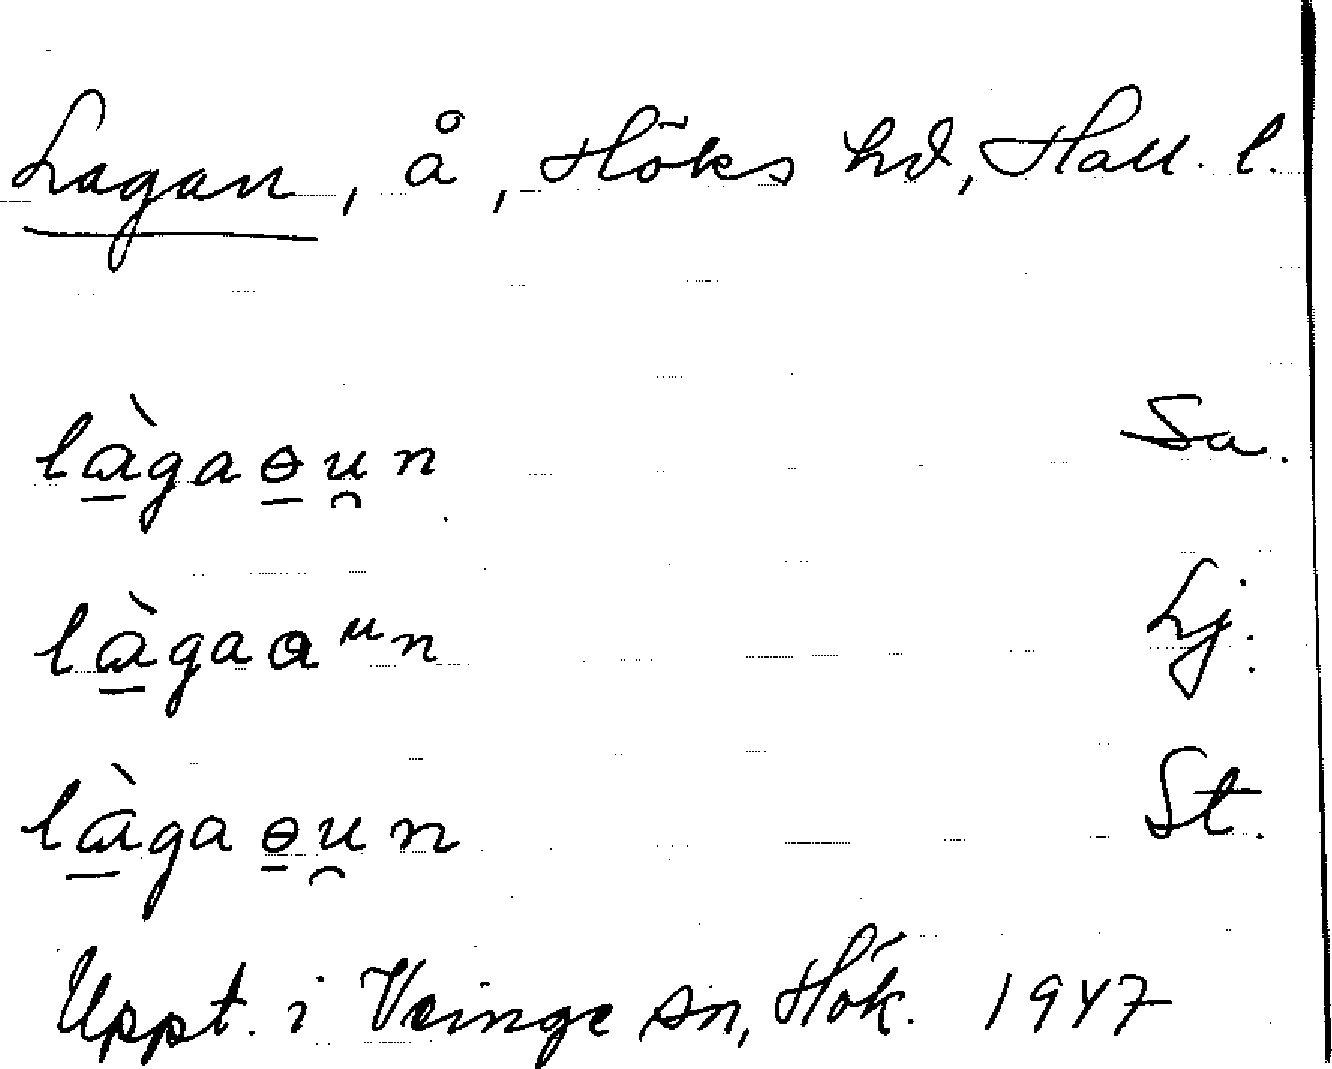 Lagan, å, Höks hd, Hall. l.
lɑ̱̀gaɵ̱u̯n Sa.
lɑ̱̀gaɑᵘn Lj.
lɑ̱̀gaɵ̱u̯n St.
Uppt. i Veinge sn, Hök. 1947